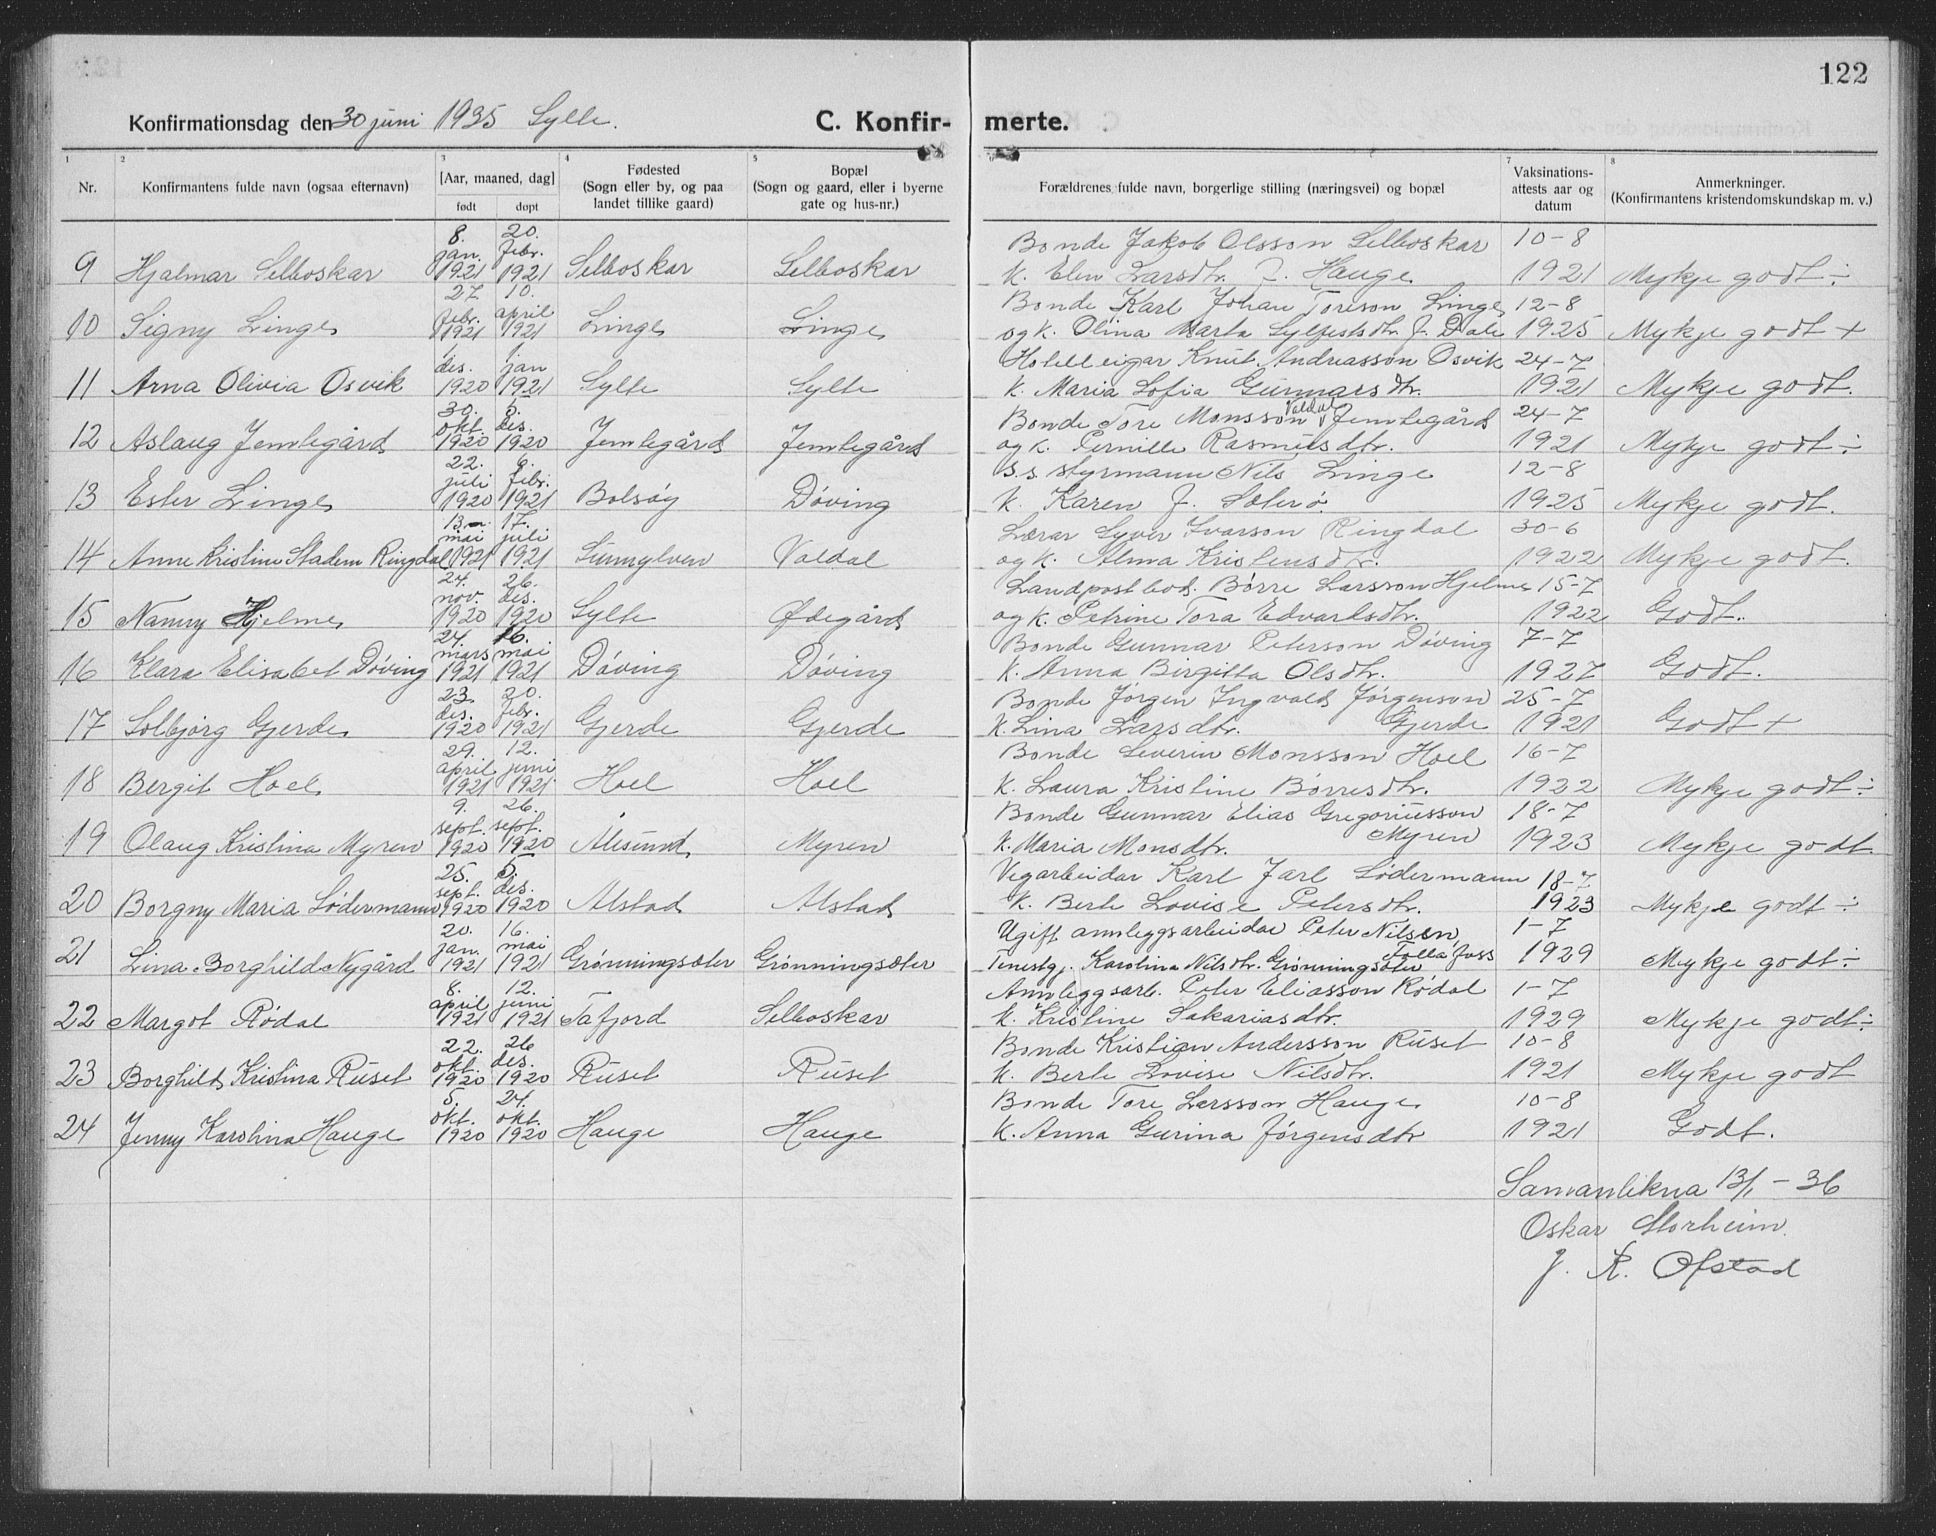 122
Konfirmationsdag den 30 juni 1935 Sylte. C. Konfir- merte.
1 2 3 4 5 7 8
Nr. Konfirmantens fulde navn (ogsaa efternavn) [Aar, maaned, dag] født døpt Fødested (Sogn eller by, og paa landet tillike gaard) Bopæl (Sogn og gaard, eller i byerne gate og hus-nr.) Forældrenes fulde navn, borgerlige stilling (næringsvei) og bopæl Vaksinations- attests aar og datum Anmerkninger. (Konfirmantens kristendomskundskap m. v.)
8. jan. 20. febr. Bonde Jakob Olsson Selboskar 10-8
9 Hjalmar Selboskar 1921 1921 Selboskar Selboskar K. Elen Larsdtr. f. Hauge 1921 Mykje godt ÷
27 febr. 10. april Bonde Karl Johan Toreson Linge 12-8
10 Signy Linge 1921 1921 Linge Linge og k. Olina Marta Sylfestsdtr. f. Dale 1925 Mykje godt +
des. jan Hotelleigar Knut Andreasson Osvik 24-7
11 Arna Olivia Osvik 1920 1921 Sylte Sylte K. Maria Sofia Gunnarsdtr. 1921 Mykje godt.
30. okt. 5. des. Bonde Tore Monsson Valdal Jemtegård 24-7
12 Aslaug Jemtegård 1920 1920 Jemtegård Jemtegård og k. Pernille Rasmusdtr. 1921 Mykje godt ÷
22. juli 6. febr. s.s. styrmann Nils Linge 12-8
13 Ester Linge 1920 1921 Bolsøy Døving K. Karen f. Sæterø 1925 Mykje godt.
13 mai 17. juli Lærar Syver Ivarson Ringdal 30-6
14 Anne Kristine Stadem Ringdal 1921 1921 Sunnylven Valdal og k. Alma Kristensdtr. 1922 Mykje godt.
24. nov. 26. des. Landpostbod. Børre Larsson Hjelme 15-7
15 Nanny Hjelme 1920 1920 Sylte Ødegård og k. Petrine Tora Edvardsdtr. 1922 Godt.
24. mars 16. mai Bonde Gunnar Peterson Døving 7-7
16 Klara Elisabet Døving 1921 1921 Døving Døving K. Anna Birgitta Olsdtr. 1927 Godt.
23 des. 20. febr. Bonde Jørgen Ingvald Jørgenson 25-7
17 Solbjørg Gjerde 1920 1921 Gjerde Gjerde K. Lina Larsdtr. Gjerde 1921 Godt +
29. april 12. juni Bonde Severin Monsson Hoel 16-7
18 Bergit Hoel 1921 1921 Hoel Hoel K. Laura Kristine Børresdtr. 1922 Mykje godt ÷
9. sept. 26. sept. Bonde Gunnar Elias Gregoriusson 18-7
19 Olaug Kristina Myren 1920 1920 Ålesund Myren K. Maria Monsdtr. Myren 1923 Mykje godt
25. sept. 5. des. Vegarbeidar Karl Jarl Södermann 18-7
20 Borgny Maria Södermann 1920 1920 Alstad Alstad K. Berte Lovise Petersdtr. 1923 Mykje godt ÷
20. jan. 16. mai Ugift annleggsarbeidar Peter Nilsen, 1-7
21 Lina Borghild Nygård 1921 1921 Grønningsæter Grønningsæter Tenestgj. Karolina Nilsdtr. Grønningsæter Follafoss 1929 Mykje godt ÷
8. april 12. juni Annleggsarb. Peter Eliasson Rødal 1-7
22 Margot Rødal 1921 1921 Tafjord Selboskar K. Kristine Sakariasdtr. 1929 Mykje godt ÷
22. okt. 26 des. Bonde Kristian Andersson Ruset 10-8
23 Borghild Kristina Ruset 1920 1920 Ruset Ruset K. Berte Lovise Nilsdtr. 1921 Mykje godt
5. okt. 24. okt. Bonde Tore Larsson Hauge 10-8
24 Jenny Karolina Hauge 1920 1920 Hauge Hauge K. Anna Gurina Jørgensdtr 1921 Godt.
Samanlikna 13/1 - 36
Oskar Storheim.
J. K. Ofstad